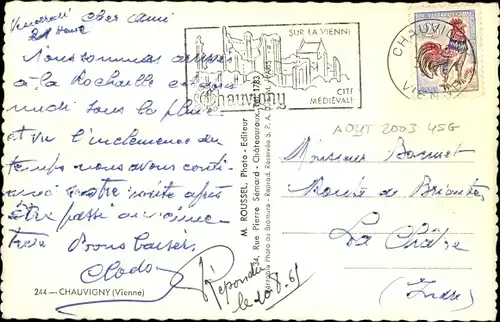 Vendredi
21 heure
Cher Ami
Nous sommes arrivés
à la Rochelle
midi sous la pluie
et vu l'inclemence du
temps nous avons conti-
nué notre visite après
être passé au cime-
tière Bons baisers
Clodo
244 — CHAUVIGNY (Vienne)
SUR LA VIENNE
Chauvigny
CITÉ
MÉDIÉVALE
CHAUVIGNY
VIENNE
M. ROUSSEL, Photo - Editeur
34, Rue Pierre Sémard - Châteauroux
Véritable Photo au Bromure - Reprod. Réservée S.P.A.
1783
AOUT 2003 45G
Monsieur
Route de
La Châtre
(Indre)
Répondu
le 10-8-65